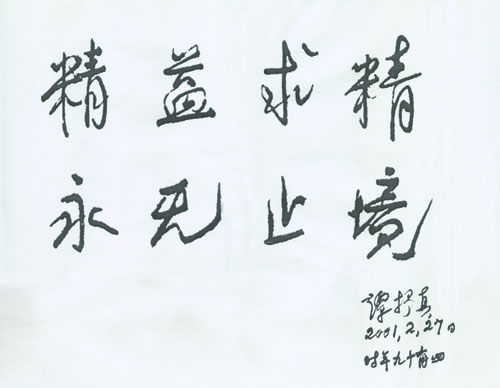 精益求精
永无止境
谭抒真
2001.2.27日
时年九十有四